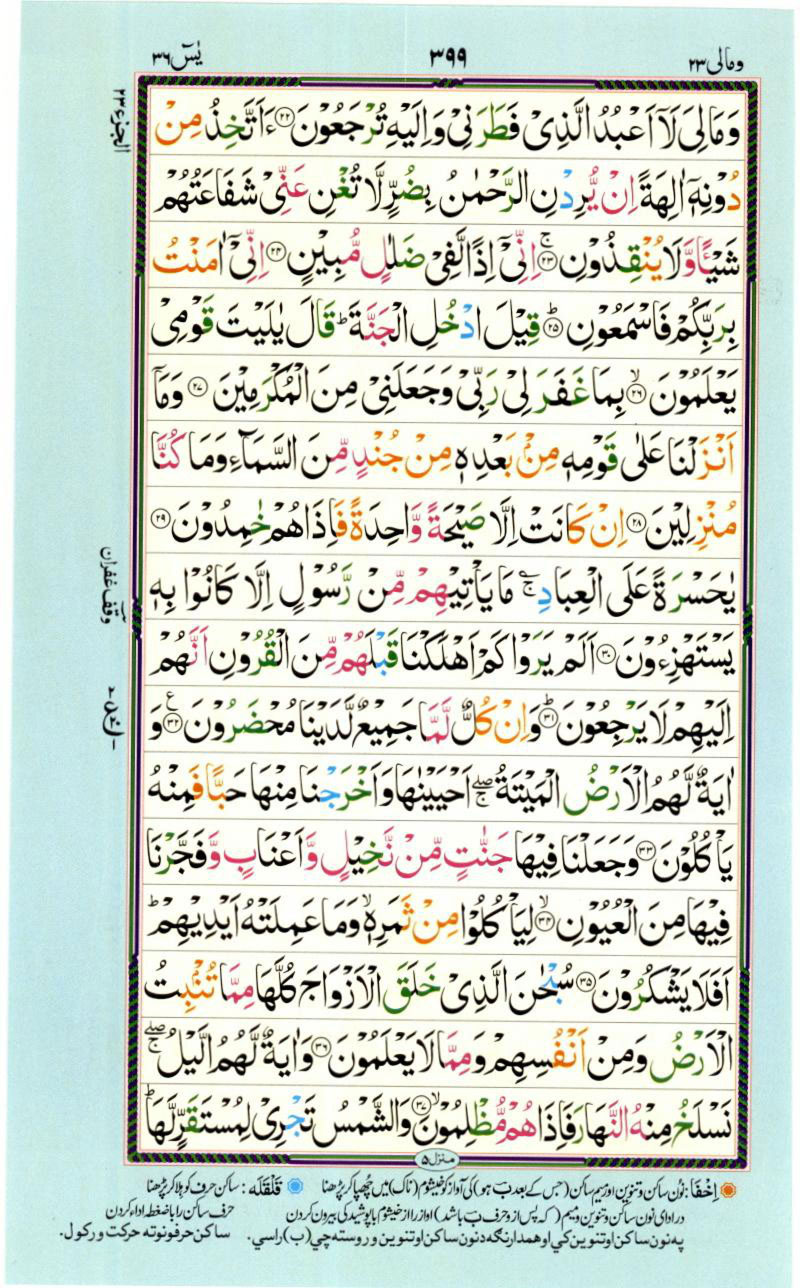 ومالی ۲۳ ۳۹۹ یٰسٓ ۳۶
الجزء ۲۳
وَمَا لِیَ لَاۤ اَعْبُدُ الَّذِیْ فَطَرَنِیْ وَاِلَیْهِ تُرْجَعُوْنَ ۝۲۲ ءَاَتَّخِذُ مِنْ
دُوْنِهٖۤ اٰلِهَةً اِنْ یُّرِدْنِ الرَّحْمٰنُ بِضُرٍّ لَّا تُغْنِ عَنِّیْ شَفَاعَتُهُمْ
شَیْـًٔا وَّلَا یُنْقِذُوْنِ ۝۲۳ۚ اِنِّیْۤ اِذًا لَّفِیْ ضَلٰلٍ مُّبِیْنٍ ۝۲۴ اِنِّیْۤ اٰمَنْتُ
بِرَبِّكُمْ فَاسْمَعُوْنِ ۝۲۵ؕ قِیْلَ ادْخُلِ الْجَنَّةَ ؕ قَالَ یٰلَیْتَ قَوْمِیْ
یَعْلَمُوْنَ ۝۲۶ۙ بِمَا غَفَرَ لِیْ رَبِّیْ وَجَعَلَنِیْ مِنَ الْمُكْرَمِیْنَ ۝۲۷ وَمَاۤ
اَنْزَلْنَا عَلٰی قَوْمِهٖ مِنْۢ بَعْدِهٖ مِنْ جُنْدٍ مِّنَ السَّمَآءِ وَمَا كُنَّا
مُنْزِلِیْنَ ۝۲۸ اِنْ كَانَتْ اِلَّا صَیْحَةً وَّاحِدَةً فَاِذَا هُمْ خٰمِدُوْنَ ۝۲۹
یٰحَسْرَةً عَلَی الْعِبَادِ ۚؔ مَا یَاْتِیْهِمْ مِّنْ رَّسُوْلٍ اِلَّا كَانُوْا بِهٖ
وقف غفران
یَسْتَهْزِءُوْنَ ۝۳۰ اَلَمْ یَرَوْا كَمْ اَهْلَكْنَا قَبْلَهُمْ مِّنَ الْقُرُوْنِ اَنَّهُمْ
اِلَیْهِمْ لَا یَرْجِعُوْنَ ۝۳۱ؕ وَاِنْ كُلٌّ لَّمَّا جَمِیْعٌ لَّدَیْنَا مُحْضَرُوْنَ ۝۳۲ۧ وَ
اٰیَةٌ لَّهُمُ الْاَرْضُ الْمَیْتَةُ ۖۚ اَحْیَیْنٰهَا وَاَخْرَجْنَا مِنْهَا حَبًّا فَمِنْهُ
یَاْكُلُوْنَ ۝۳۳ وَجَعَلْنَا فِیْهَا جَنّٰتٍ مِّنْ نَّخِیْلٍ وَّاَعْنَابٍ وَّفَجَّرْنَا
فِیْهَا مِنَ الْعُیُوْنِ ۝۳۴ۙ لِیَاْكُلُوْا مِنْ ثَمَرِهٖ ۙ وَمَا عَمِلَتْهُ اَیْدِیْهِمْ ؕ
اَفَلَا یَشْكُرُوْنَ ۝۳۵ سُبْحٰنَ الَّذِیْ خَلَقَ الْاَزْوَاجَ كُلَّهَا مِمَّا تُنْۢبِتُ
الْاَرْضُ وَمِنْ اَنْفُسِهِمْ وَمِمَّا لَا یَعْلَمُوْنَ ۝۳۶ وَاٰیَةٌ لَّهُمُ الَّیْلُ ۖۚ
نَسْلَخُ مِنْهُ النَّهَارَ فَاِذَا هُمْ مُّظْلِمُوْنَ ۝۳۷ۙ وَالشَّمْسُ تَجْرِیْ لِمُسْتَقَرٍّ لَّهَا ؕ
منزل ۵
اِخْفَا: نون ساکن و تنوین اور میم ساکن (جس کے بعد ب ہو) کی آواز کو خیشوم (ناک) میں چھپا کر پڑھنا قَلْقَلَہ: ساکن حرف کو ہلا کر پڑھنا
در ادای نون ساکن و تنوین و میم (که پس از و حرف ب باشد) اواز را از خیشوم با پوشیدگی بیرون کردن حرف ساکن را با ضغطه اداء کردن
په نون ساکن او تنوین کي او همدارنګه د نون ساکن او تنوین وروسته چي (ب) راسي. ساکن حرفونو ته حرکت ورکول.